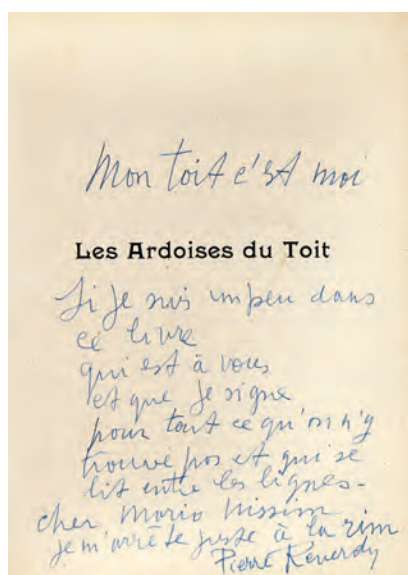 Mon toit c'est moi
Les Ardoises du Toit
Si je suis un peu dans
ce livre
qui est à vous
et que je signe
pour tout ce qu'on n'y
trouve pas et qui se
lit entre les lignes -
cher Mario Nissim
je m'arrête juste à la rim
Pierre Reverdy